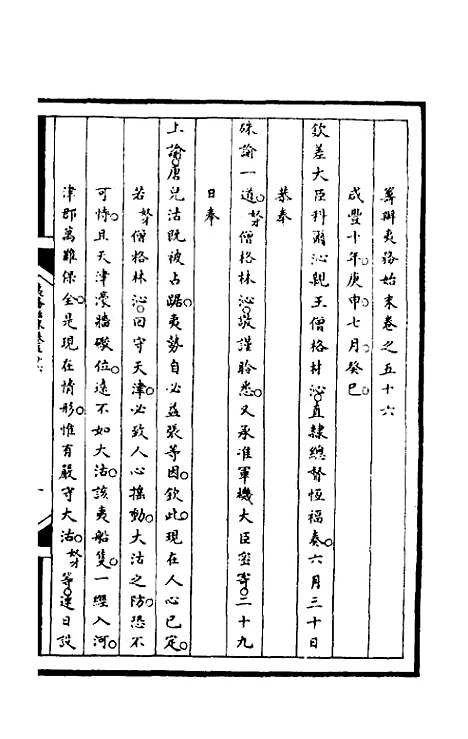 籌辦夷務始末卷之五十六
咸豐十年。庚申七月癸巳。
欽差大臣科爾沁親王僧格林沁。直隸總督恆福奏。六月三十日
恭奉
硃諭一道。奴才僧格林沁。敬謹聆悉。又承准軍機大臣密寄。二十九
日奉
上諭。唐兒沽既被占踞。夷勢自必益張等因。欽此。現在人心已定。
若奴才僧格林沁。回守天津。必致人心搖動。大沽之防。恐不
可恃。且天津濠牆礮位。遠不如大沽。該夷船隻。一經入河。
津郡萬難保全。是現在情形。惟有嚴守大沽。奴才等。連日設